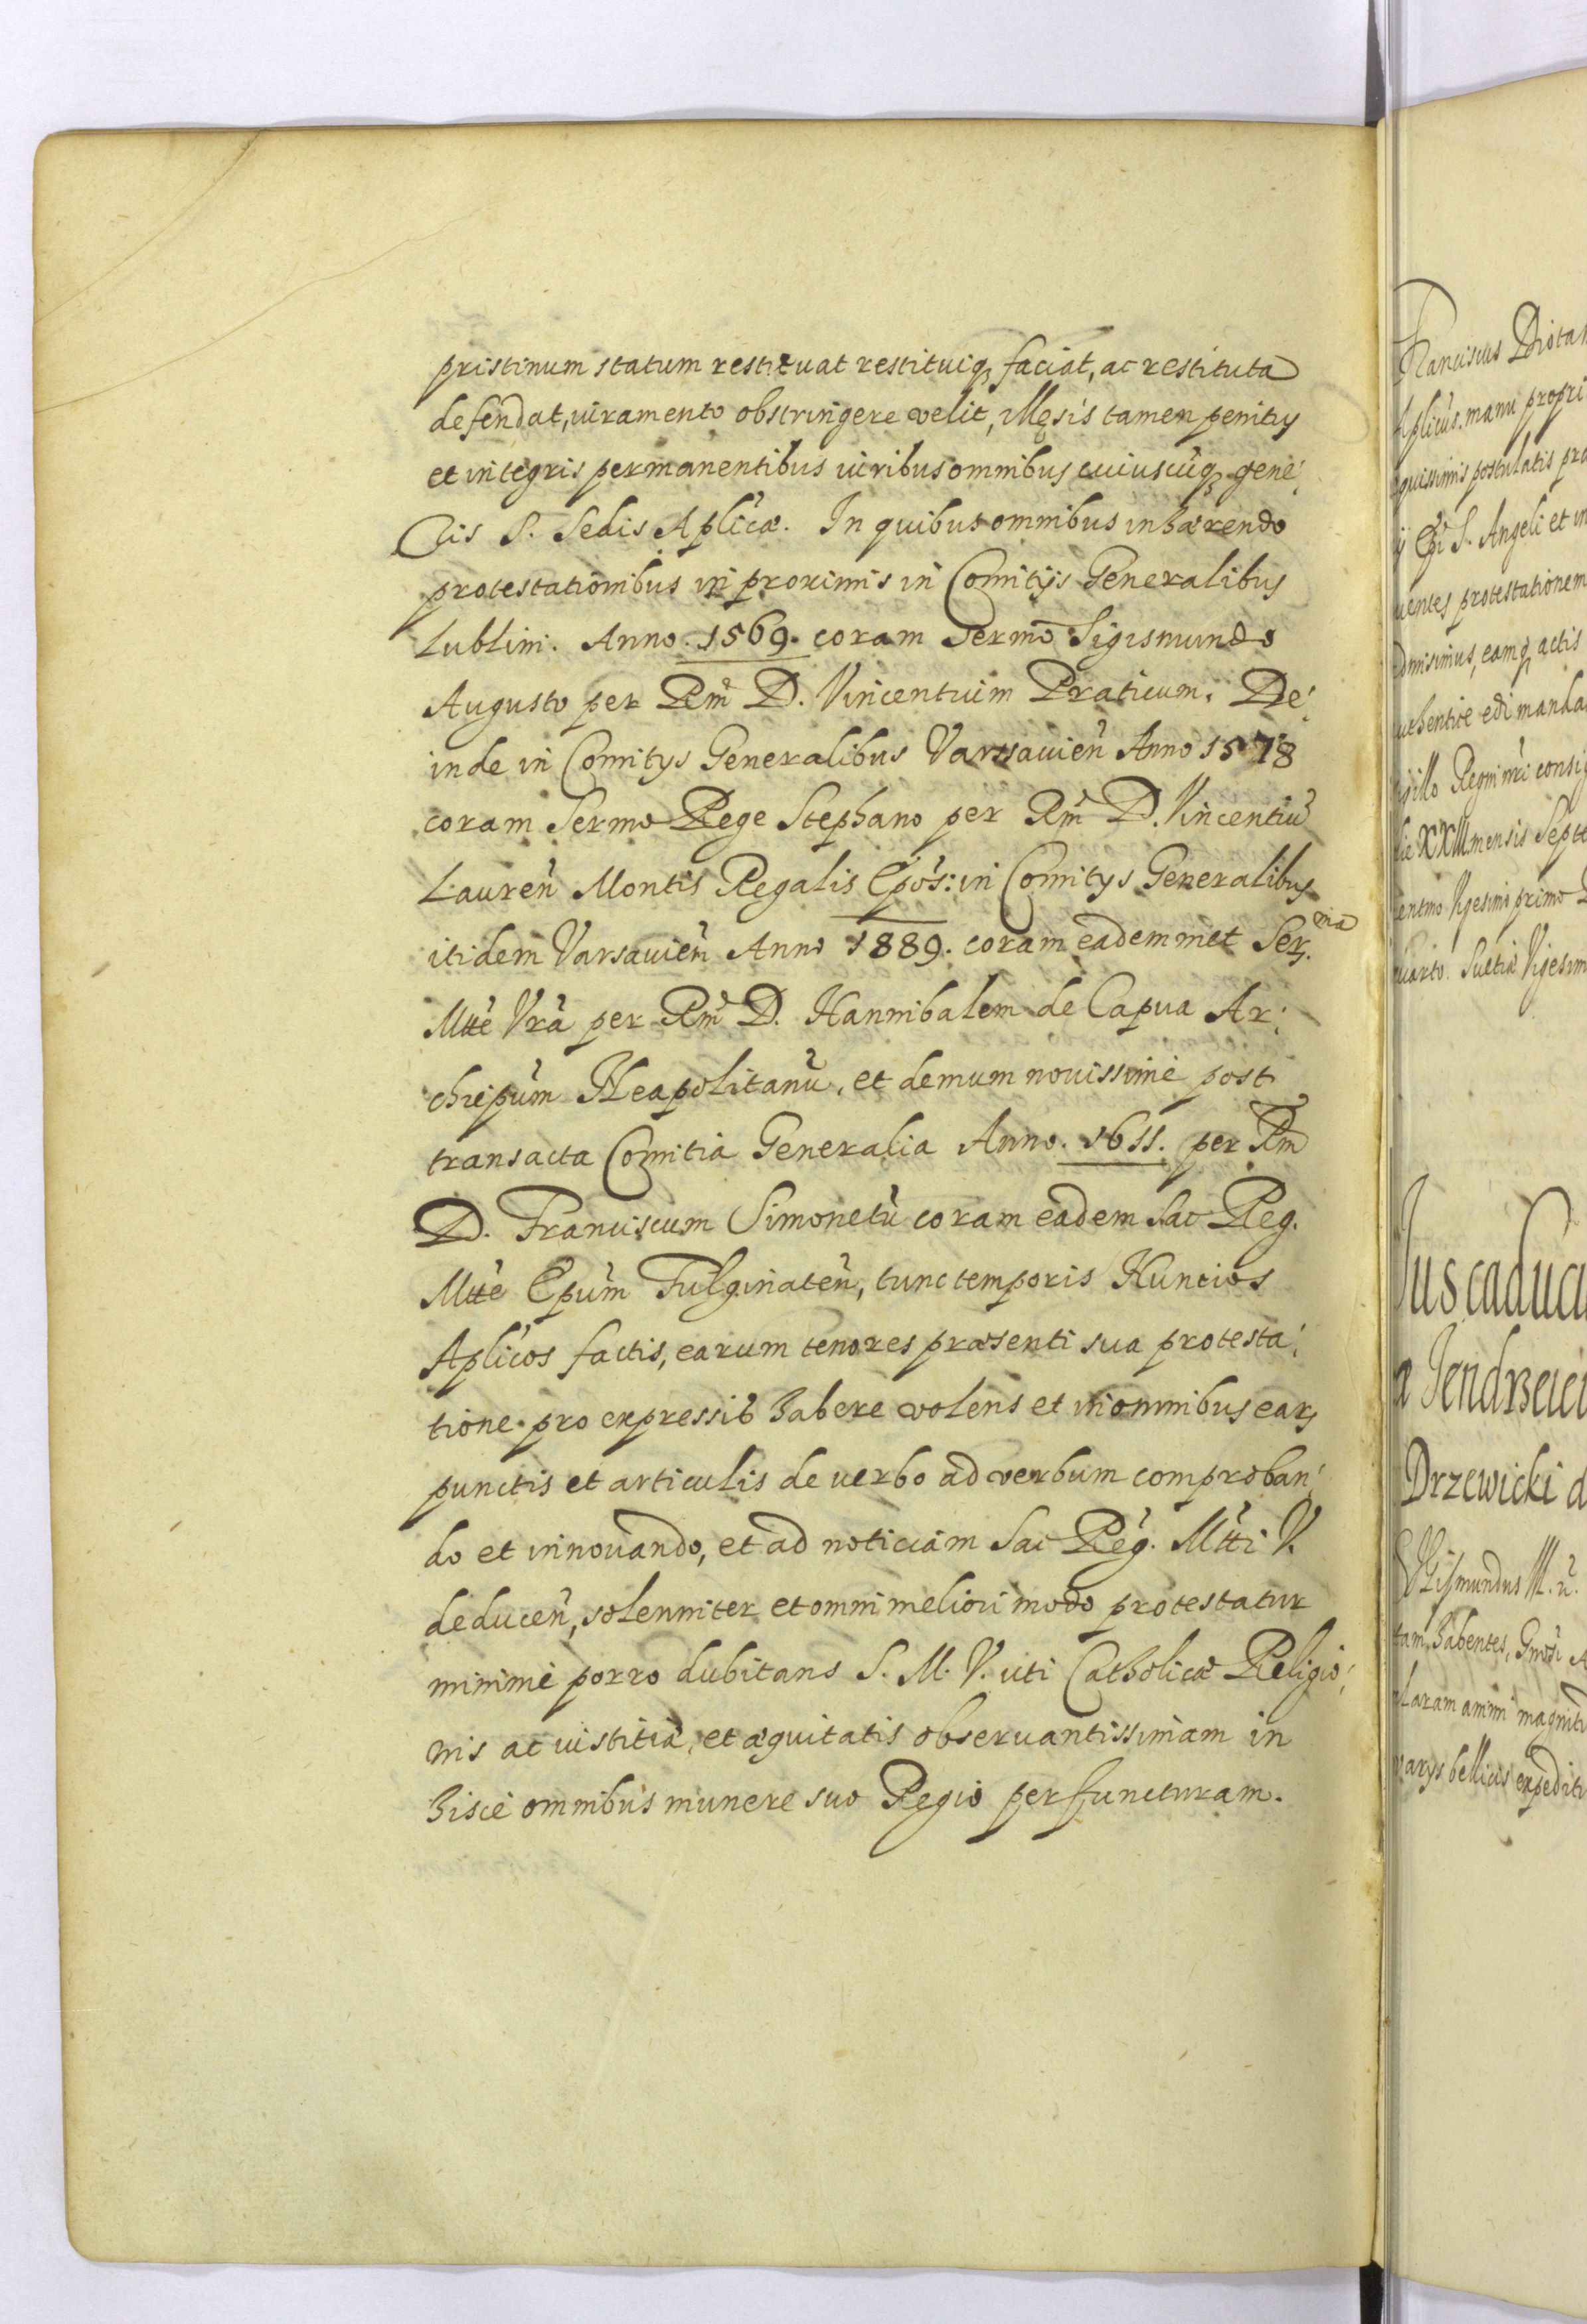 pristinum statum restituat restituiq₃ faciat, ac restituta
defendat, iuramento obstringere velit, illęsis tamen penitus
et integris permanentibus iuribus omnibus cuiuscuq₃ gene,
ris S. Sedis Aplicæ. In quibus omnibus inhærendo
protestationibus in proximis in Comitijs Generalibus
Lublin. Anno. 1569. coram Sermo Sigismundo
Augusto per Rm D. Vincentium Praticum. De,
inde in Comitys Generalibus Varsauien Anno 1578
coram Sermo Rege Stephano per Rm D. Vincentiu
Lauren Montis Regalis Epos: in Comitys Generalibus
itidem Varsauien Anno 1889. coram eademmet Ser. ma
Mtte Vra per Rm D. Hannibalem de Capua Ar,
chiepum Neapolitanu, et demum nouissime post
transacta Comitia Generalia Anno. 1611. per Rm
D. Franciscum Simonetu coram eadem Sac Reg.
Mtte Epum Fulginaten, tunc temporis Nuncios
Aplicos factis, earum tenores præsenti sua protesta,
tione pro expressis habere volens et in omnibus ear₃
punctis et articulis de uerbo ad verbum comproban,
do et innouando, et ad noticiam Sac Reg. Mtti V.
deducen, solenniter et omni meliori modo protestatur
minime porro dubitans S. M. V. uti Catholicæ Religio,
nis ac iustitiæ, et æquitatis obseruantissimam in
hisce omnibus munere suo Regio perfuncturam.
Franciscus Diota
Aplicus. manu propri
equissimis postulatis pra
ij Epi S. Angeli et in
uentes protestationem
dmisimus, eamq₃ actis
uthentice edi manda
igillo Regni nri consig
die XXIII mensis Septe
entmo Vigesimo primo
uarto. Suetiæ Vigesim
Jus caduci
a Jendrzeici
Drzewicki d
Sigismundus III. ñ.
tam habentes, Gnosi A
claram animi magnitu
varys bellicis expediti